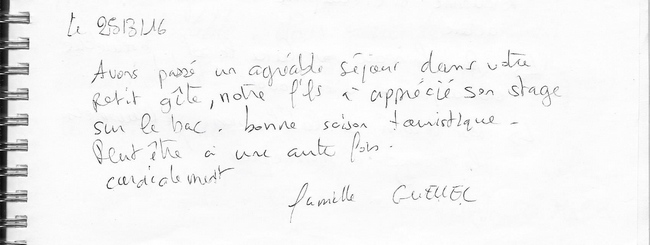 le 28/3/16
Avons passé un agréable séjour dans votre
petit gîte, notre fils à apprécié son stage
sur le bac. bonne saison touristique.
Peut être à une autre fois.
cordialement
famille GUELLEC